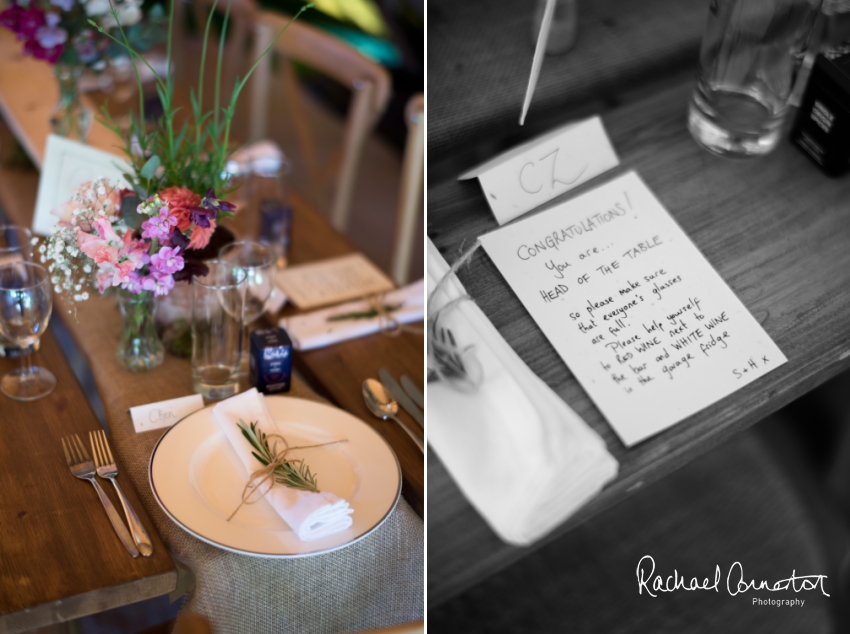 CZ
CONGRATULATIONS!
You are...
HEAD OF THE TABLE
so please make sure
that everyone's glasses
are full.
Please help yourself
to RED WINE next to
the bar and WHITE WINE
in the garage fridge
S+H x
Rachael Connerton
Photography